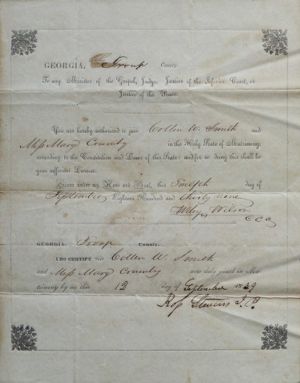 GEORGIA, Troup County
To any Minister of the Gospel, Judge, Justice of the Inferior Court, or
Justice of the Peace.
You are hereby authorized to join Collen W. Smith and
Miss Mary in the Holy State of Matrimony,
according to the Constitution and Laws of this State: and for so doing this shall be
your sufficient License.
Given under my Hand and Seal, this Twelfth day of
September Eighteen Hundred and thirty nine
Wilson
C C O
GEORGIA: Troup County:
I DO CERTIFY that Collen W. Smith
and Miss Mary were duly joined in Mat-
rimony by me this 12 day of September 1839
J. P.